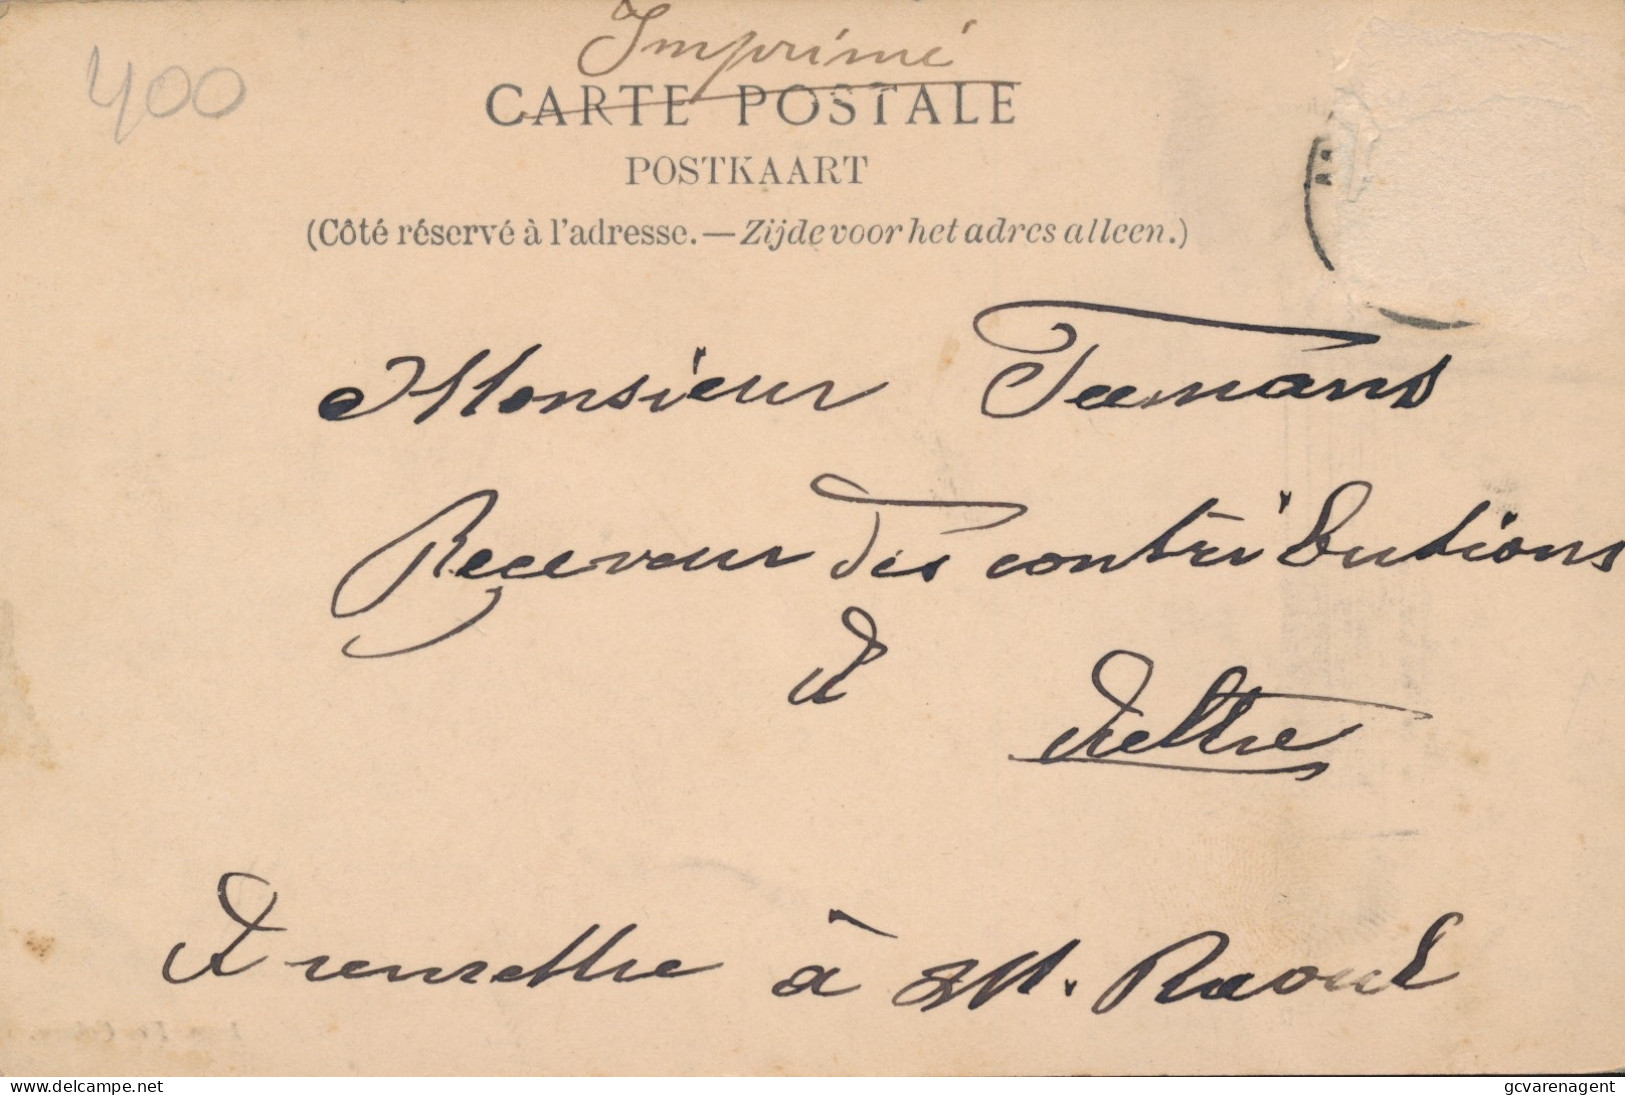 Imprimé
400
CARTE POSTALE
POSTKAART
(Côté réservé à l'adresse. — Zijde voor het adres alleen.)
Monsieur Teemans
Receveur des contributions
à
A remettre à M. Raoul
delcampe.net
gcvarenagent